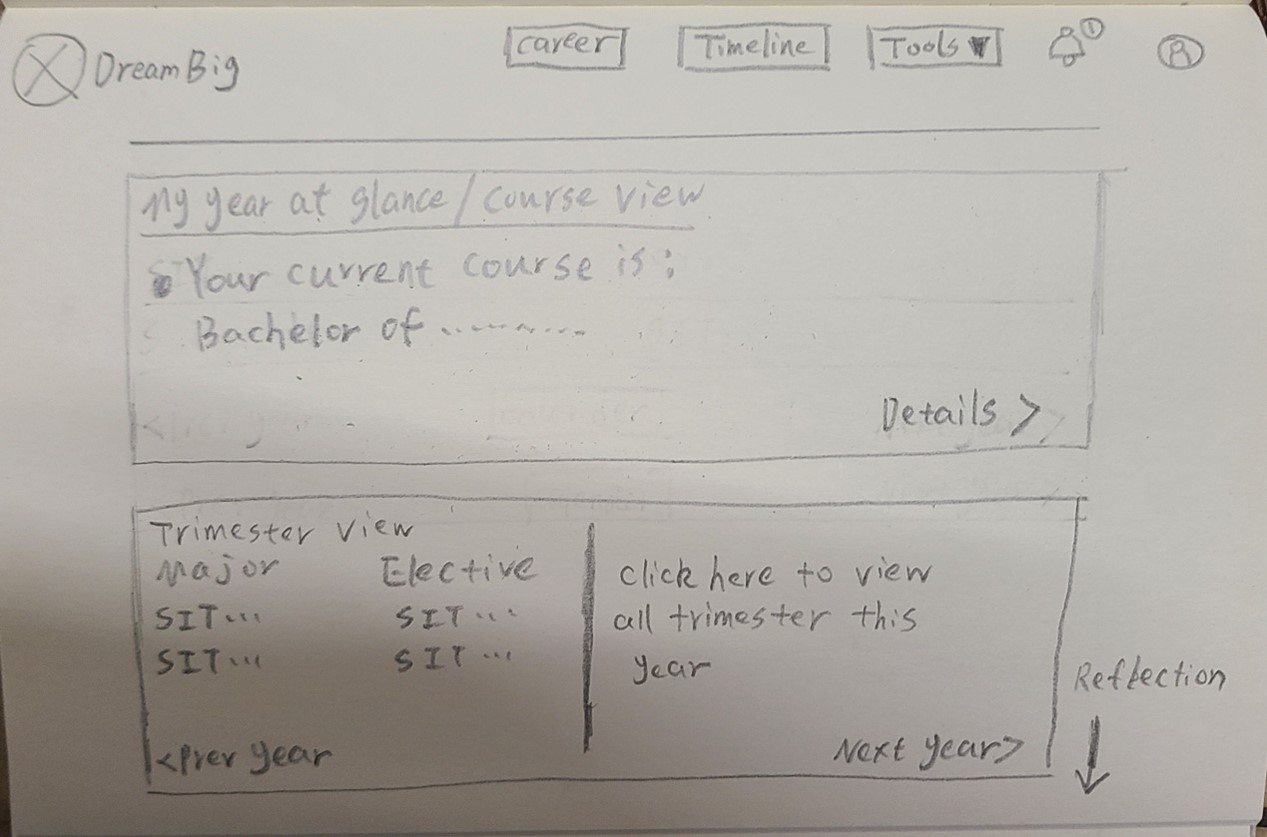 DreamBig
Career
Timeline
Tools ▼
1
My year at glance/course view
Your current course is:
Bachelor of ..........
Details >
Trimester View
Major Elective
SIT... SIT...
SIT... SIT...
<Prev year
click here to view
all trimester this
year
Next year>
Reflection